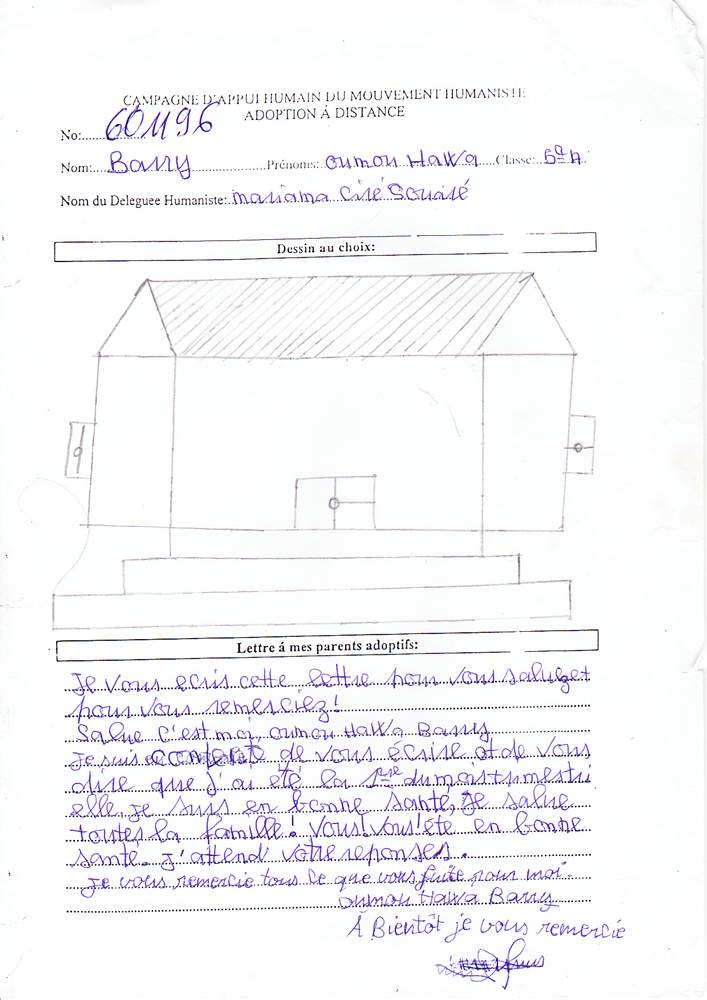 CAMPAGNE D'APPUI HUMAIN DU MOUVEMENT HUMANISTE
ADOPTION Á DISTANCE
No:......601196
Nom:...Barry.....................Prénoms:..Oumou Hawa.....Classe:..5è A.
Nom du Deleguee Humaniste:..Mariama Ciré Souaré
Dessin au choix:
Lettre á mes parents adoptifs:
Je vous ecris cette lettre pour vous saluz et
pour vous remerciez!
Salue c'est moi, Oumou Hawa Barry
Je suis contente de vous écrire et de vous
dire que j'ai été la 1ere
elle, je suis en bonne santé, Je salue
toutes la famille! Vous, vous! été en bonne
santé. J'attend votre reponses.
Je vous remercie tous ce que vous faite pour moi.
Oumou Hawa Barry
À Bientôt je vous remercie